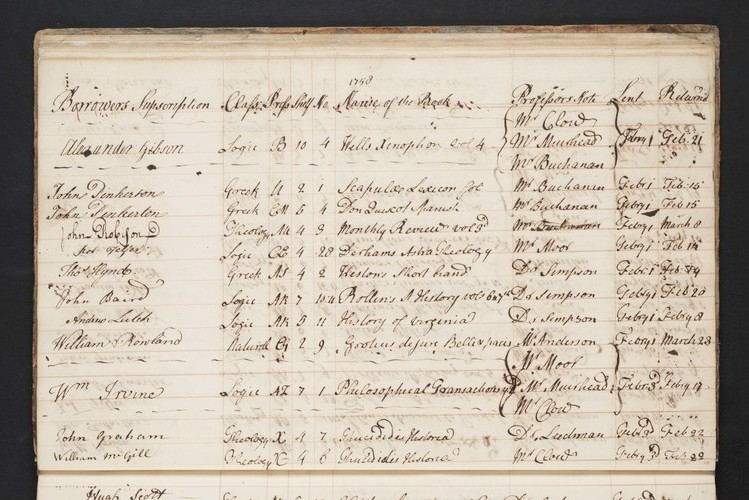 1758
Borrowers Supscription Class Press Shelf No Name of the Book Professors Note Lent Returnd
Mr Clow
Alexander Gibson Logic B 10 4 Wells Xenophon vol 4 Mr Muirhead Febry 1 Feb. 21
Mr Buchanan
John Penkerton Greek A 2 1 Scapulas Lexicon fol Mr Buchanan Feby 1 Feb. 15
John Penkerton Greek 6 4 Don Quixot Spanish Mr Buchanan Feby 1 Feb 15
John Robison Theology 4 3 Monthly Review vol Feby 1 March 8
Logic 4 28 Derhams Astra Theology Mr Moor Feby 1 Feb 14
Thos Greek 4 2 Westons Short hand Dr Simpson Feb 1 Feb
John Baird Logic AK 7 Rollens A History vols Dr Simpson Feby 1 Feb 20
Andrew Leitch Logic AK 5 11 History of Virginia Dr Simpson Feby 1 Feby 8
William Rowland Natural 2 9 Grotius de jure Belli & pacis Mr Anderson Feby 1 March 23
Mr Moor
Wm Irvine Logic AZ 7 1 Philosophical Transactions Mr Muirhead Febr 3d Feby 17
Mr Clow
John Graham Theology X 4 7 Historia Dr Leechman Feb 3d Feb 22
William McGill Theology X 4 6 Historia Mr Clow Feby 3d Feb 22
Hugh Scott